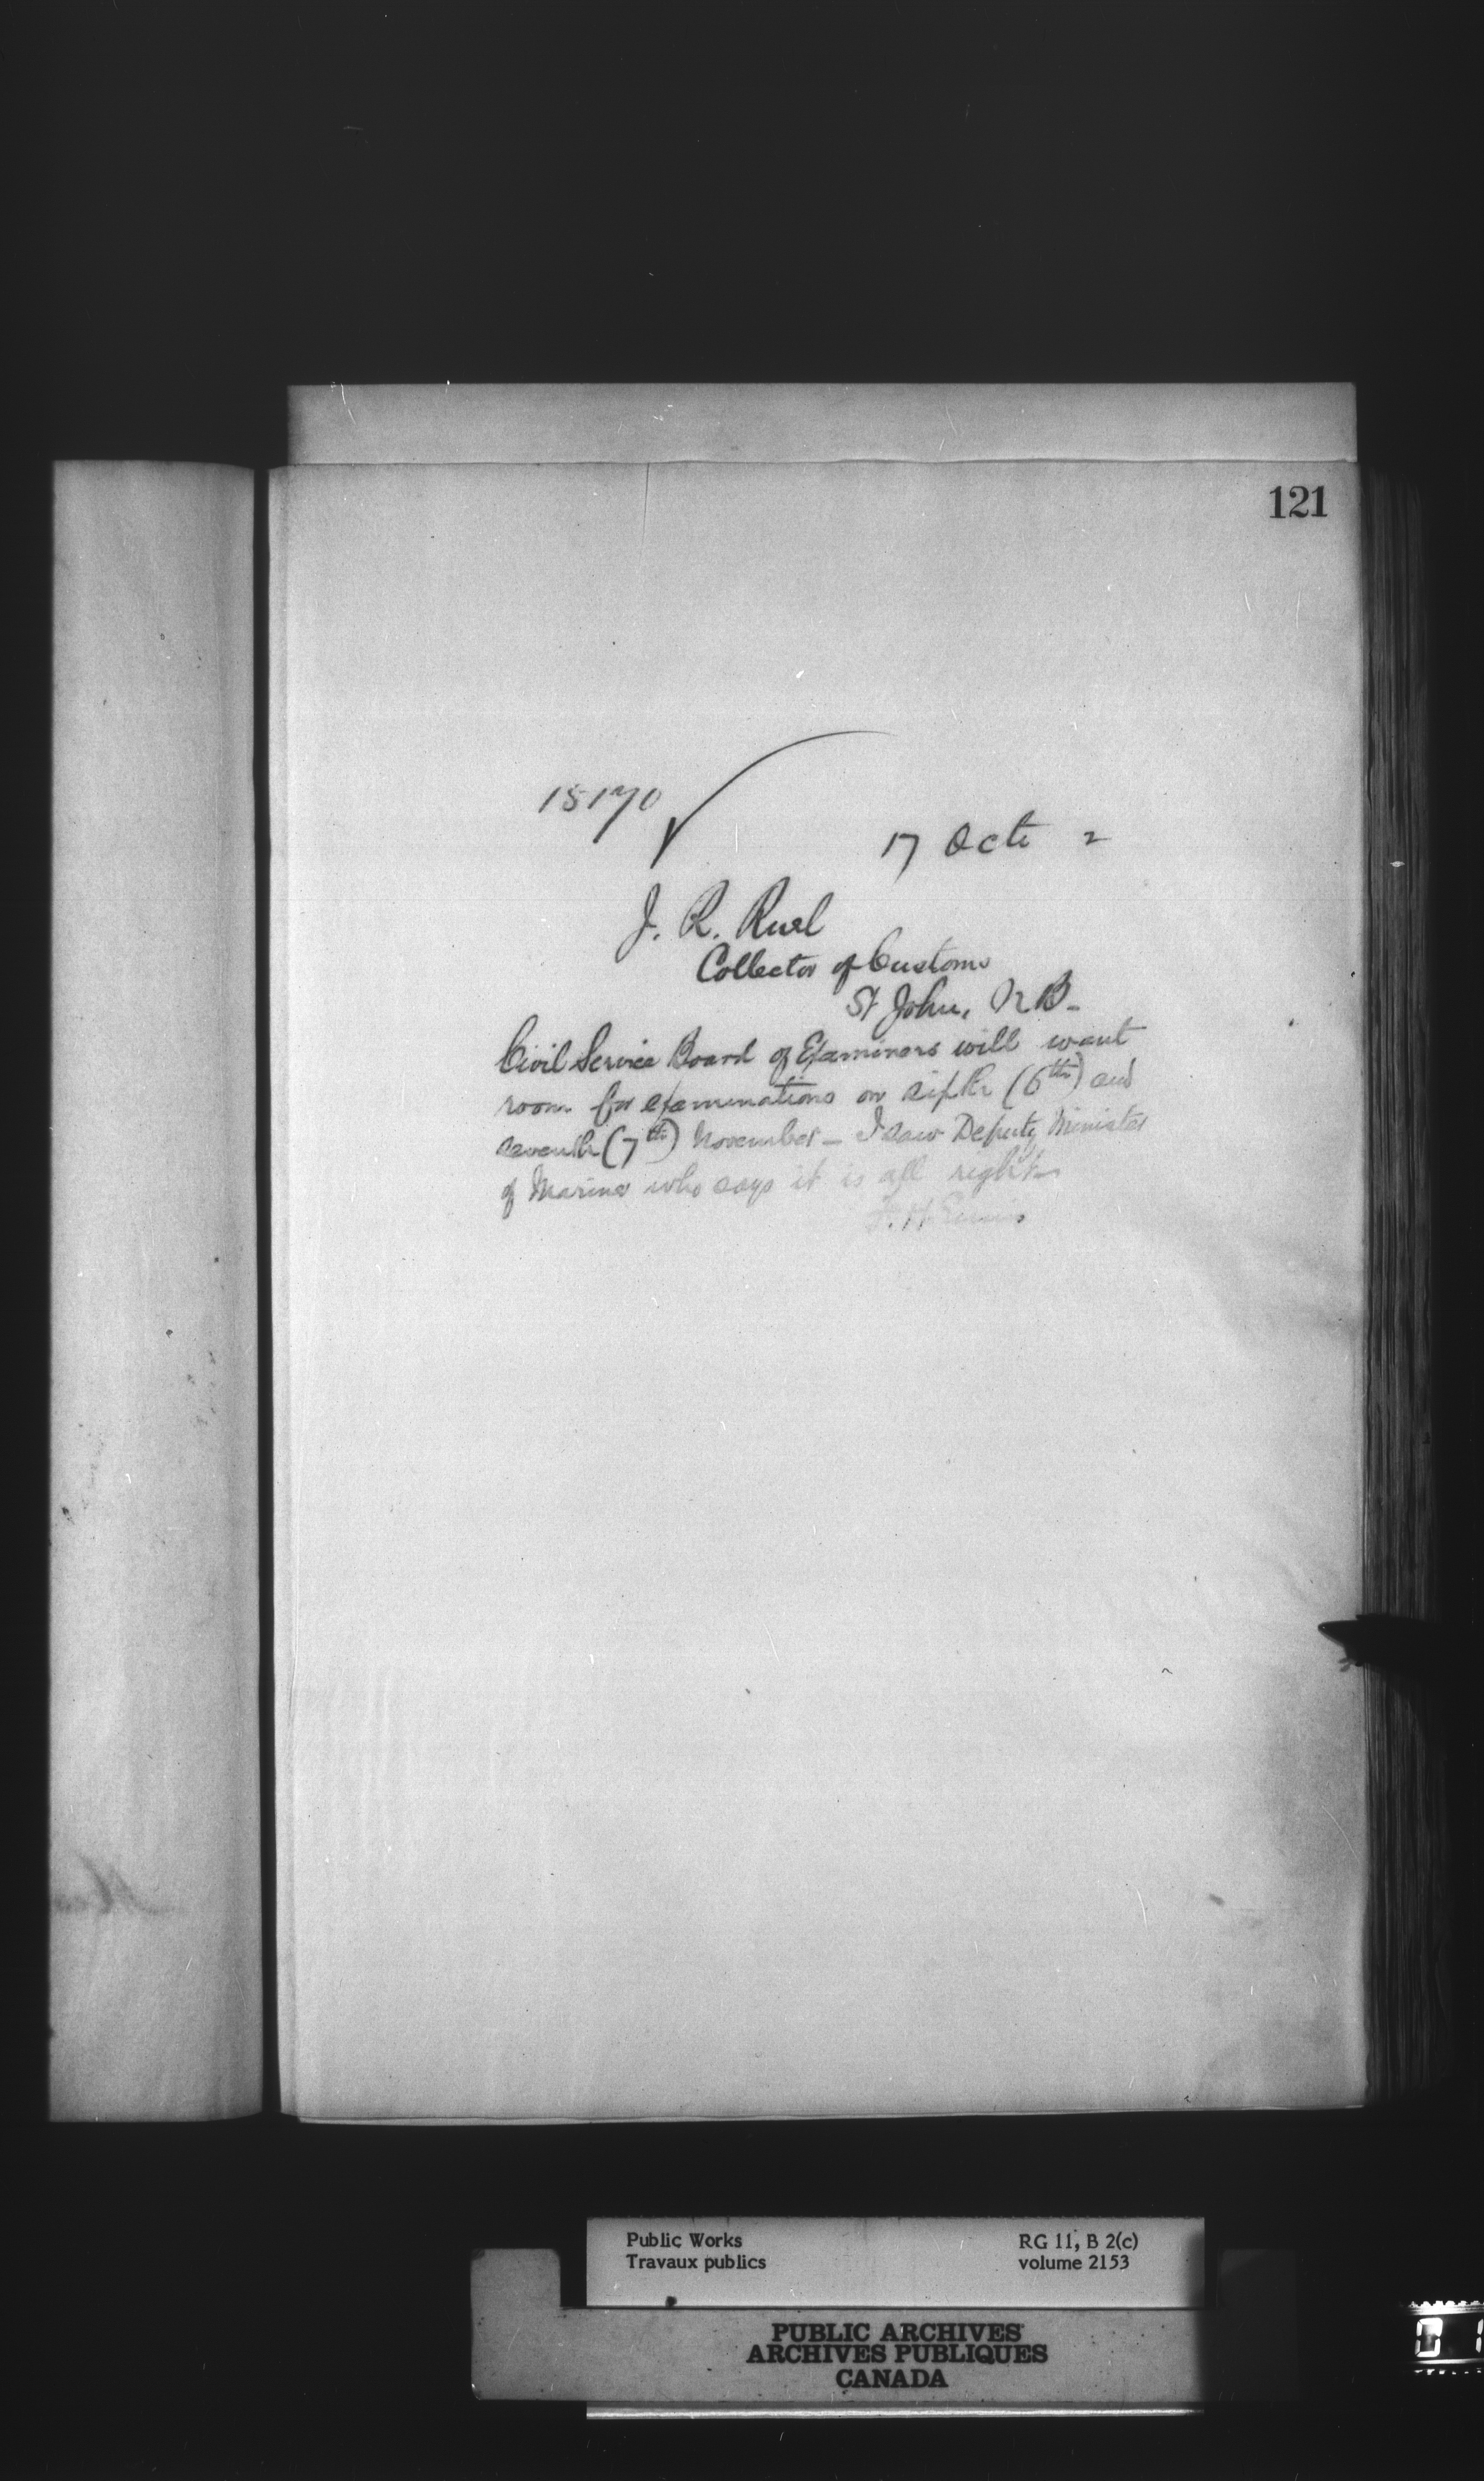 121
15170
17 Octr 2
J. R. Ruel
Collector of Customs
St John, N B -
Civil Service Board of Examiners will want
room for examinations on sixth (6th) and
seventh (7th) November - I saw Deputy Minister
of Marine who says it is all right -
F. H. Ennis
Public Works
Travaux publics
RG 11, B 2(c)
volume 2153
PUBLIC ARCHIVES
ARCHIVES PUBLIQUES
CANADA
0 1